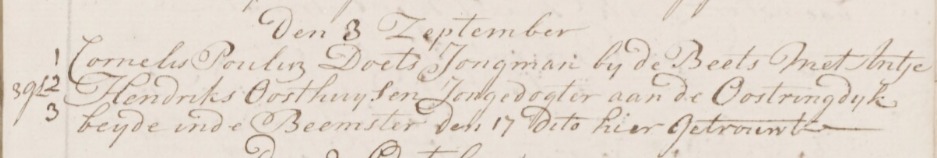 Den 3 Zeptember
1 Cornelis Pouluz Doets Jongman by de Beets met Antje
2 Hendriks Oosthuysen Jongedogter aan de Oostringdyk
3 beyde inde Beemster den 17 dito hier getrouwt